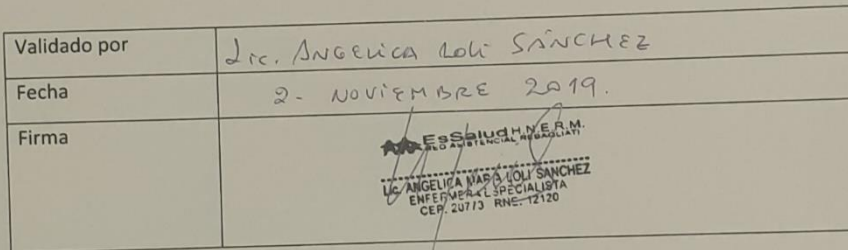 Validado por Lic. ANGELICA LOLI SÁNCHEZ
Fecha 2- NOVIEMBRE 2019.
Firma
EsSalud H.N.E.R.M.
RED ASISTENCIAL REBAGLIATI
Lic. ANGELICA MARIA LOLI SANCHEZ
ENFERMERA ESPECIALISTA
CEP. 20773 RNE. 12120